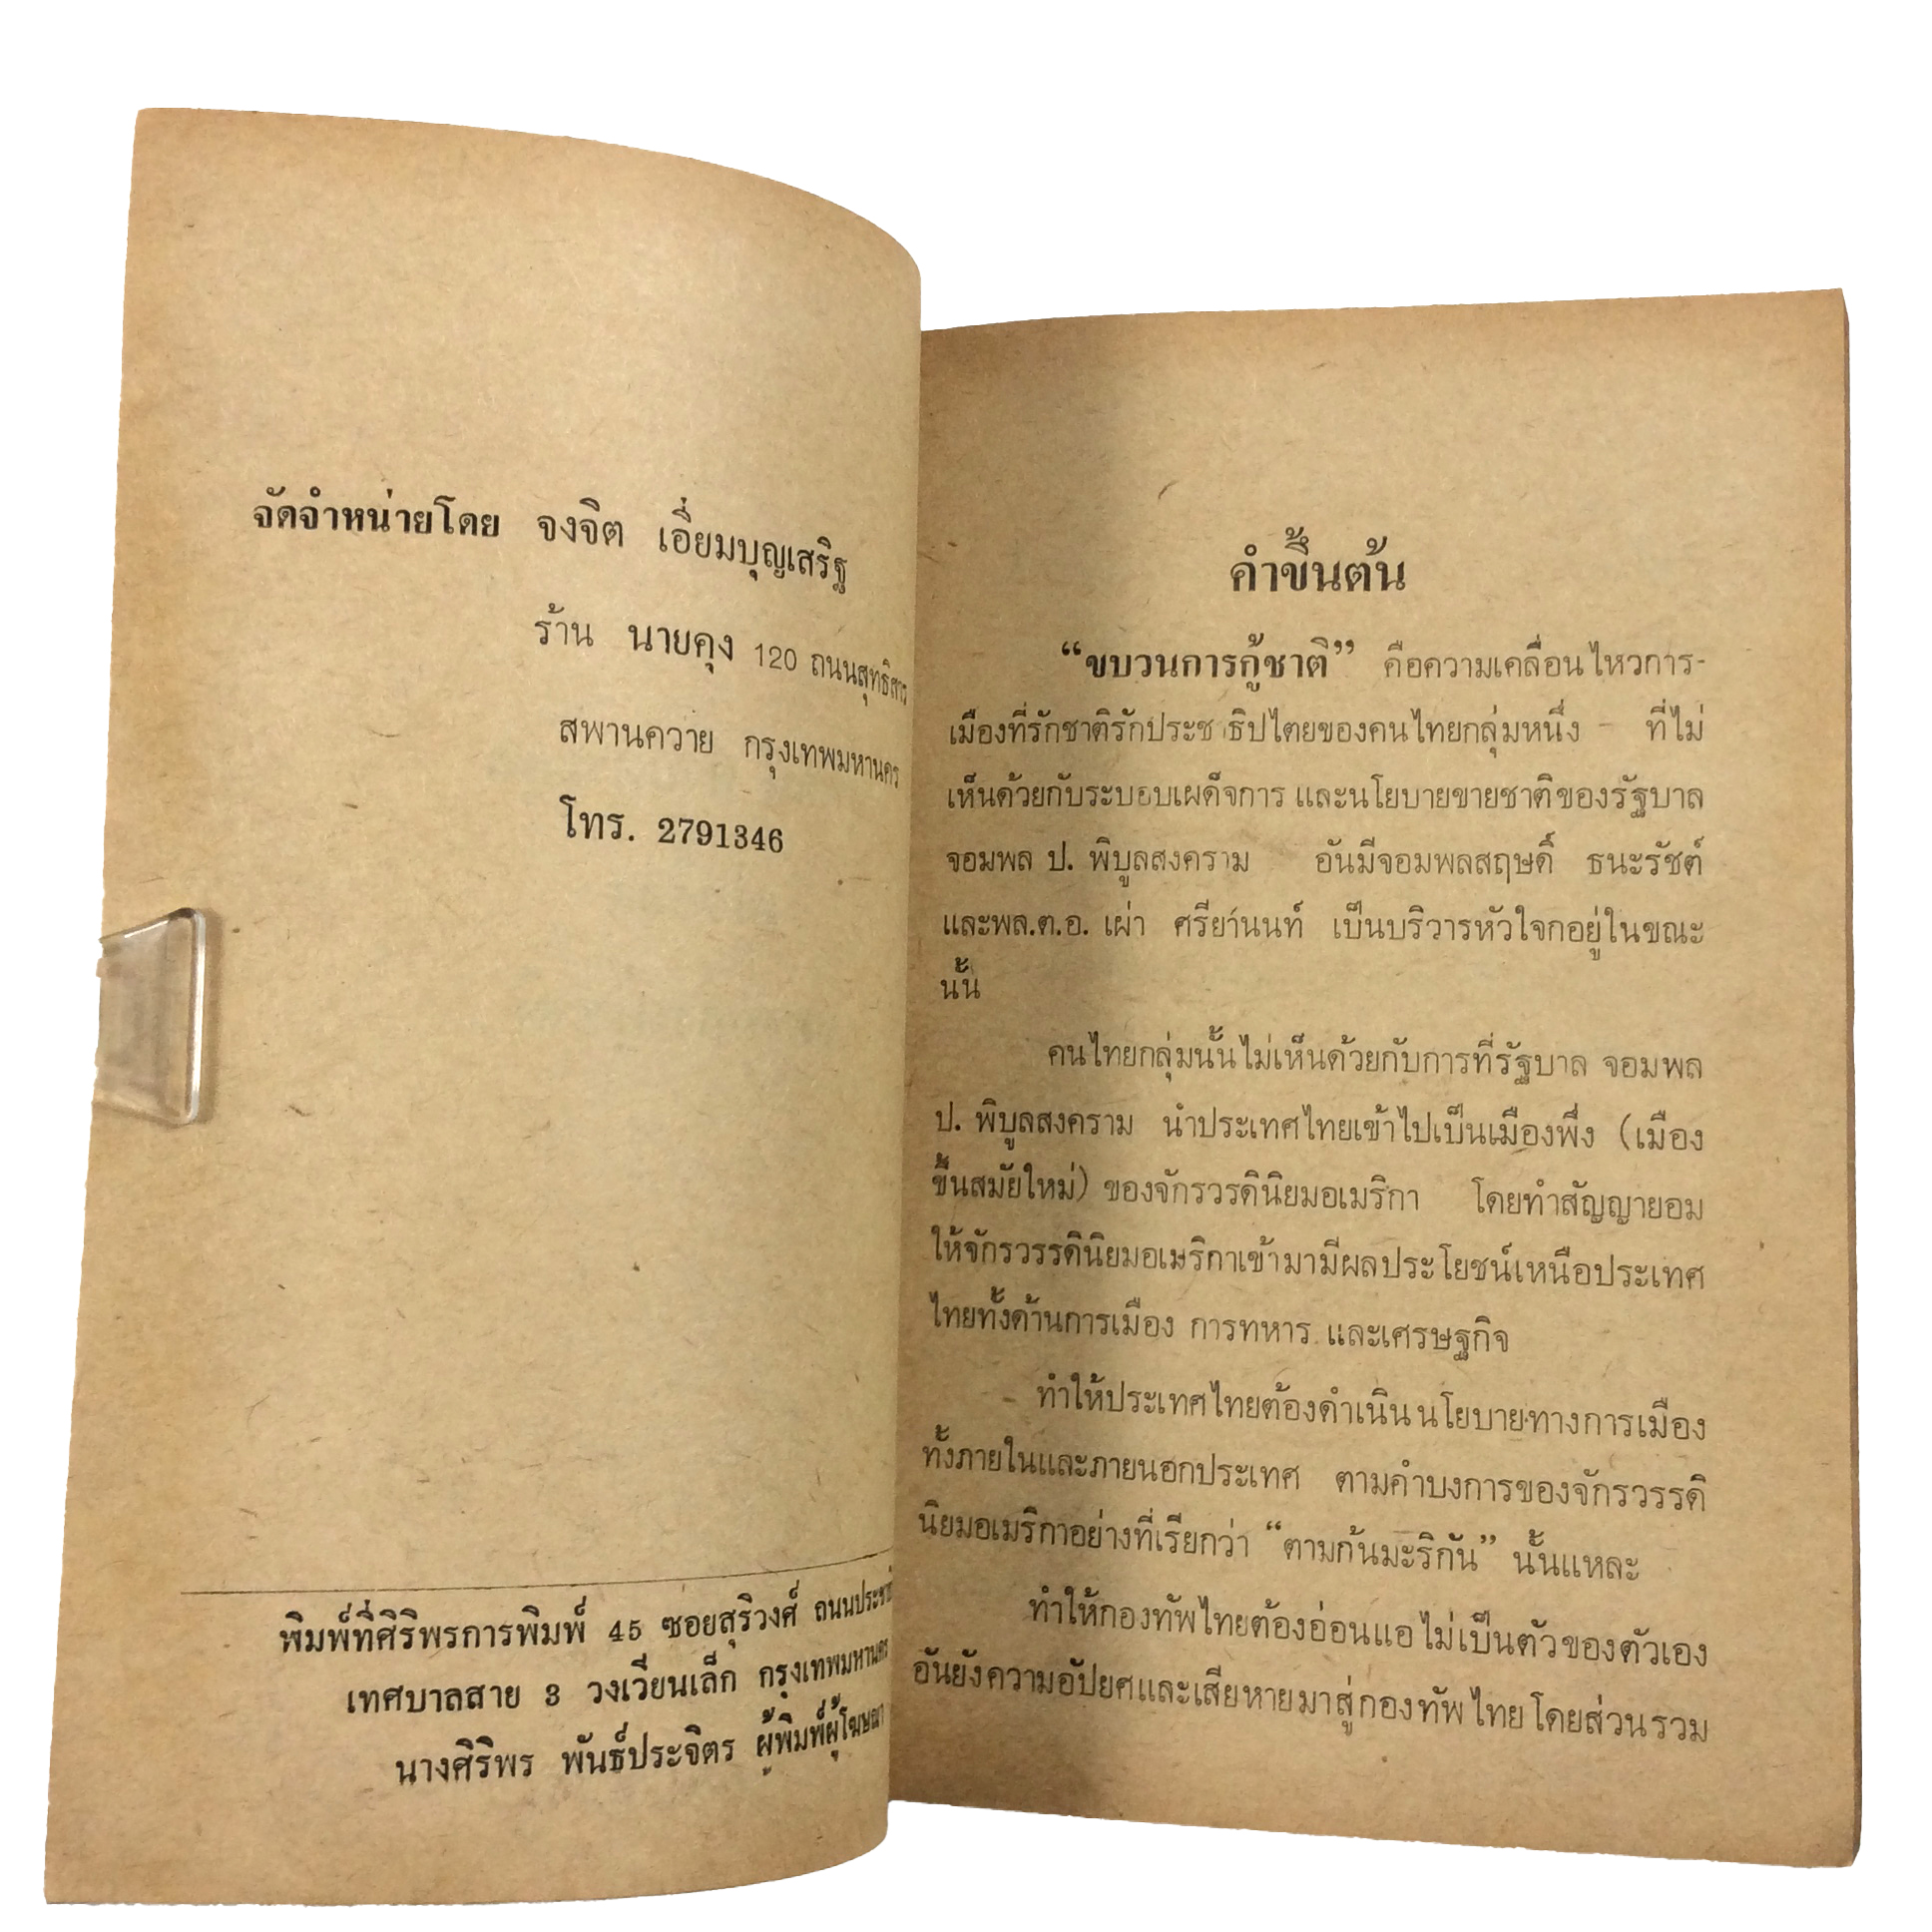 จัดจำหน่ายโดย จงจิต เอี่ยมบุญเสริฐ
ร้าน นายคุง 120 ถนนสุทธิสาร
สพานควาย กรุงเทพมหานคร
โทร. 2791346
พิมพ์ที่ศิริพรการพิมพ์ 45 ซอยสุริวงศ์
เทศบาลสาย 3 วงเวียนเล็ก กรุงเทพมหานคร
นางศิริพร พันธ์ประจิตร ผู้พิมพ์ผู้โฆษณา
คำขึ้นต้น
“ขบวนการกู้ชาติ” คือความเคลื่อนไหวการ-
เมืองที่รักชาติรักประชาธิปไตยของคนไทยกลุ่มหนึ่ง – ที่ไม่
เห็นด้วยกับระบอบเผด็จการ และนโยบายขายชาติของรัฐบาล
จอมพล ป. พิบูลสงคราม อันมีจอมพลสฤษดิ์ ธนะรัชต์
และพล.ต.อ. เผ่า ศรียานนท์ เป็นบริวารหัวใจกอยู่ในขณะ
นั้น
คนไทยกลุ่มนั้นไม่เห็นด้วยกับการที่รัฐบาล จอมพล
ป. พิบูลสงคราม นำประเทศไทยเข้าไปเป็นเมืองพึ่ง (เมือง
ขึ้นสมัยใหม่) ของจักรวรดินิยมอเมริกา โดยทำสัญญายอม
ให้จักรวรรดินิยมอเมริกาเข้ามามีผลประโยชน์เหนือประเทศ
ไทยทั้งด้านการเมือง การทหาร และเศรษฐกิจ
ทำให้ประเทศไทยต้องดำเนินนโยบายทางการเมือง
ทั้งภายในและภายนอกประเทศ ตามคำบงการของจักรวรรดิ
นิยมอเมริกาอย่างที่เรียกว่า “ตามก้นมะริกัน” นั้นแหละ
ทำให้กองทัพไทยต้องอ่อนแอไม่เป็นตัวของตัวเอง
อันยังความอัปยศและเสียหายมาสู่กองทัพไทยโดยส่วนรวม